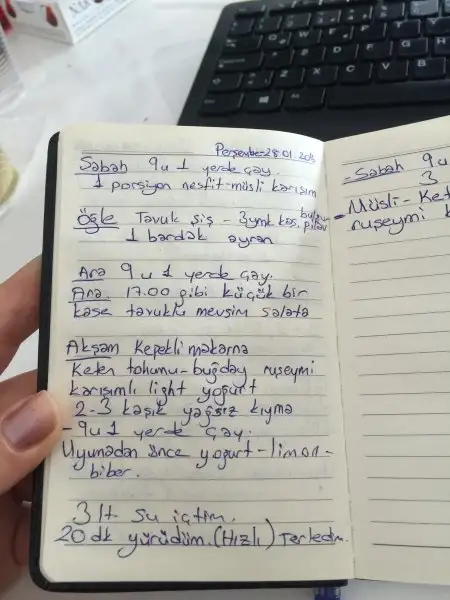 Perşembe 28.01
Sabah 9u 1 yerde çay.
1 porsiyon nesfit-müsli karışım
Öğle Tavuk şiş - 3 ymk kaş. bulgur pilav
1 bardak ayran
Ara 9u 1 yerde çay.
Ara. 17.00 gibi küçük bir
kase tavuklu mevsim salata
Akşam Kepekli makarna
Keten tohumu-buğday ruşeymi
karışımlı light yogurt
2-3 kaşık yağsız kıyma
- 9u 1 yerde çay.
Uyumadan önce yogurt-limon-
biber.
3 lt su içtim.
20 dk yürüdüm. (Hızlı) Terledim.
- Sabah 9u
3
- Müsli - Ket
ruşeymi